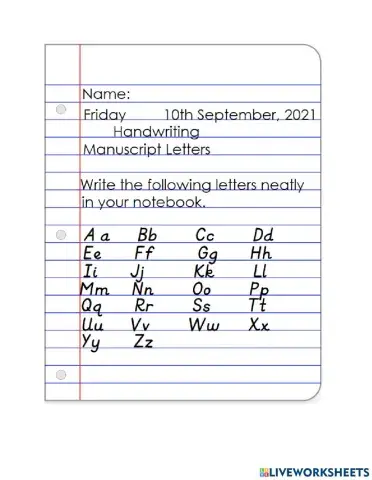 Name:
Friday 10th September, 2021
Handwriting
Manuscript Letters
Write the following letters neatly
in your notebook.
A a Bb Cc Dd
Ee Ff Gg Hh
Ii Jj Kk Ll
Mm Nn Oo Pp
Qq Rr Ss Tt
Uu Vv Ww Xx
Yy Zz
LIVEWORKSHEETS